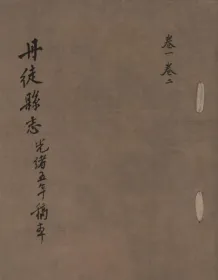 卷一卷二
丹徒縣志光緒五年稿本